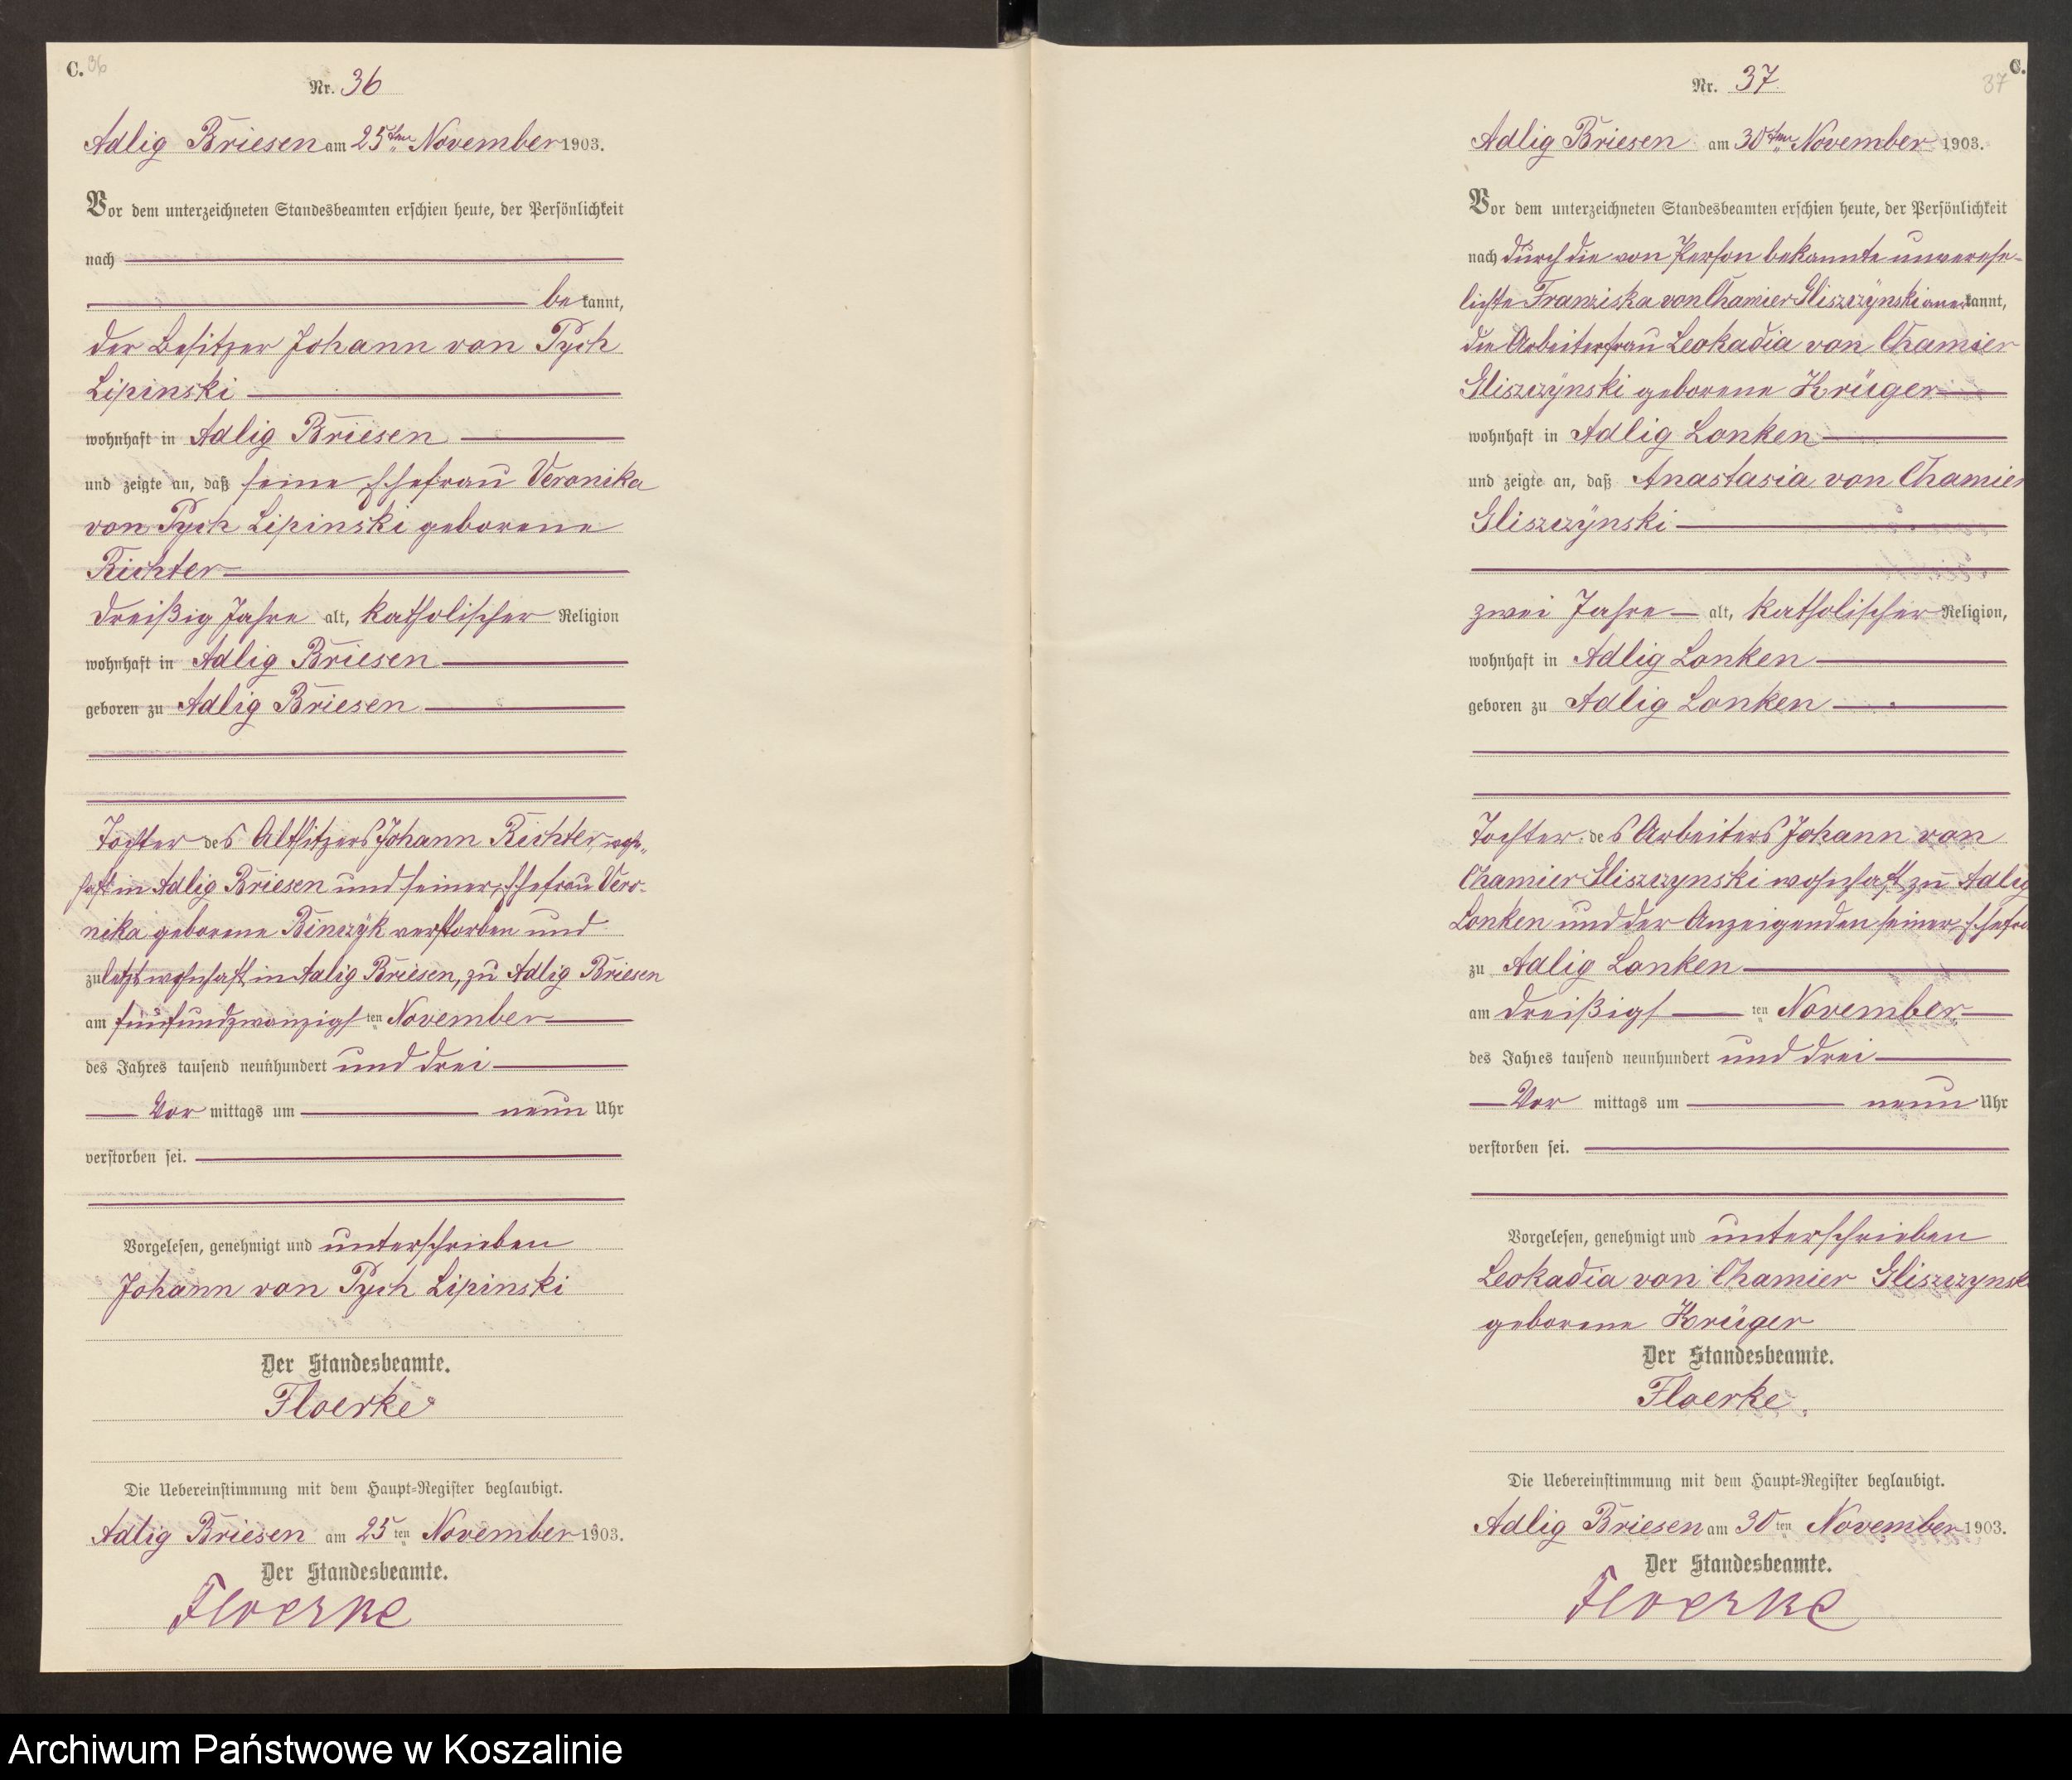 C. 36
Nr. 36
Adlig Briesen am 25ten November 1903.
Vor dem unterzeichneten Standesbeamten erschien heute, der Persönlichkeit
nach
bekannt,
der Besitzer Johann von Pych
Lipinski
wohnhaft in Adlig Briesen
und zeigte an, daß seine Ehefrau Veronika
von Pych Lipinski geborene
Richter
dreißig Jahre alt, katholischer Religion
wohnhaft in Adlig Briesen
geboren zu Adlig Briesen
Tochter des Altsitzers Johann Richter, wohn-
haft in Adlig Briesen und seiner Ehefrau Vero-
nika geborene Binczÿk verstorben und
zuletzt wohnhaft in Adlig Briesen, zu Adlig Briesen
am fünfundzwanzigsten November
des Jahres tausend neunhundert und drei
Vor mittags um neun Uhr
verstorben sei.
Vorgelesen, genehmigt und unterschrieben
Johann von Pych Lipinski
Der Standesbeamte.
Floerke
Die Uebereinstimmung mit dem Haupt-Register beglaubigt.
Adlig Briesen am 25ten November 1903.
Der Standesbeamte.
Floerke
C.
37
Nr. 37
Adlig Briesen am 30ten November 1903.
Vor dem unterzeichneten Standesbeamten erschien heute, der Persönlichkeit
nach durch die von Person bekannte unverehe-
lichte Franziska von Chamier Gliszczÿnski anerkannt,
die Arbeiterfrau Leokadia von Chamier
Gliszczÿnski geborene Krüger
wohnhaft in Adlig Lonken
und zeigte an, daß Anastasia von Chamier
Gliszczÿnski
zwei Jahre alt, katholischer Religion,
wohnhaft in Adlig Lonken
geboren zu Adlig Lonken
Tochter des Arbeiters Johann von
Chamier Gliszczynski wohnhaft zu Adlig
Lonken und der Anzeigenden seiner Ehefrau
zu Adlig Lonken
am dreißigsten November
des Jahres tausend neunhundert und drei
Vor mittags um neun Uhr
verstorben sei.
Vorgelesen, genehmigt und unterschrieben
Leokadia von Chamier Gliszczynsk
geborene Krüger
Der Standesbeamte.
Floerke.
Die Uebereinstimmung mit dem Haupt-Register beglaubigt.
Adlig Briesen am 30ten November 1903.
Der Standesbeamte.
Floerke
Archiwum Państwowe w Koszalinie